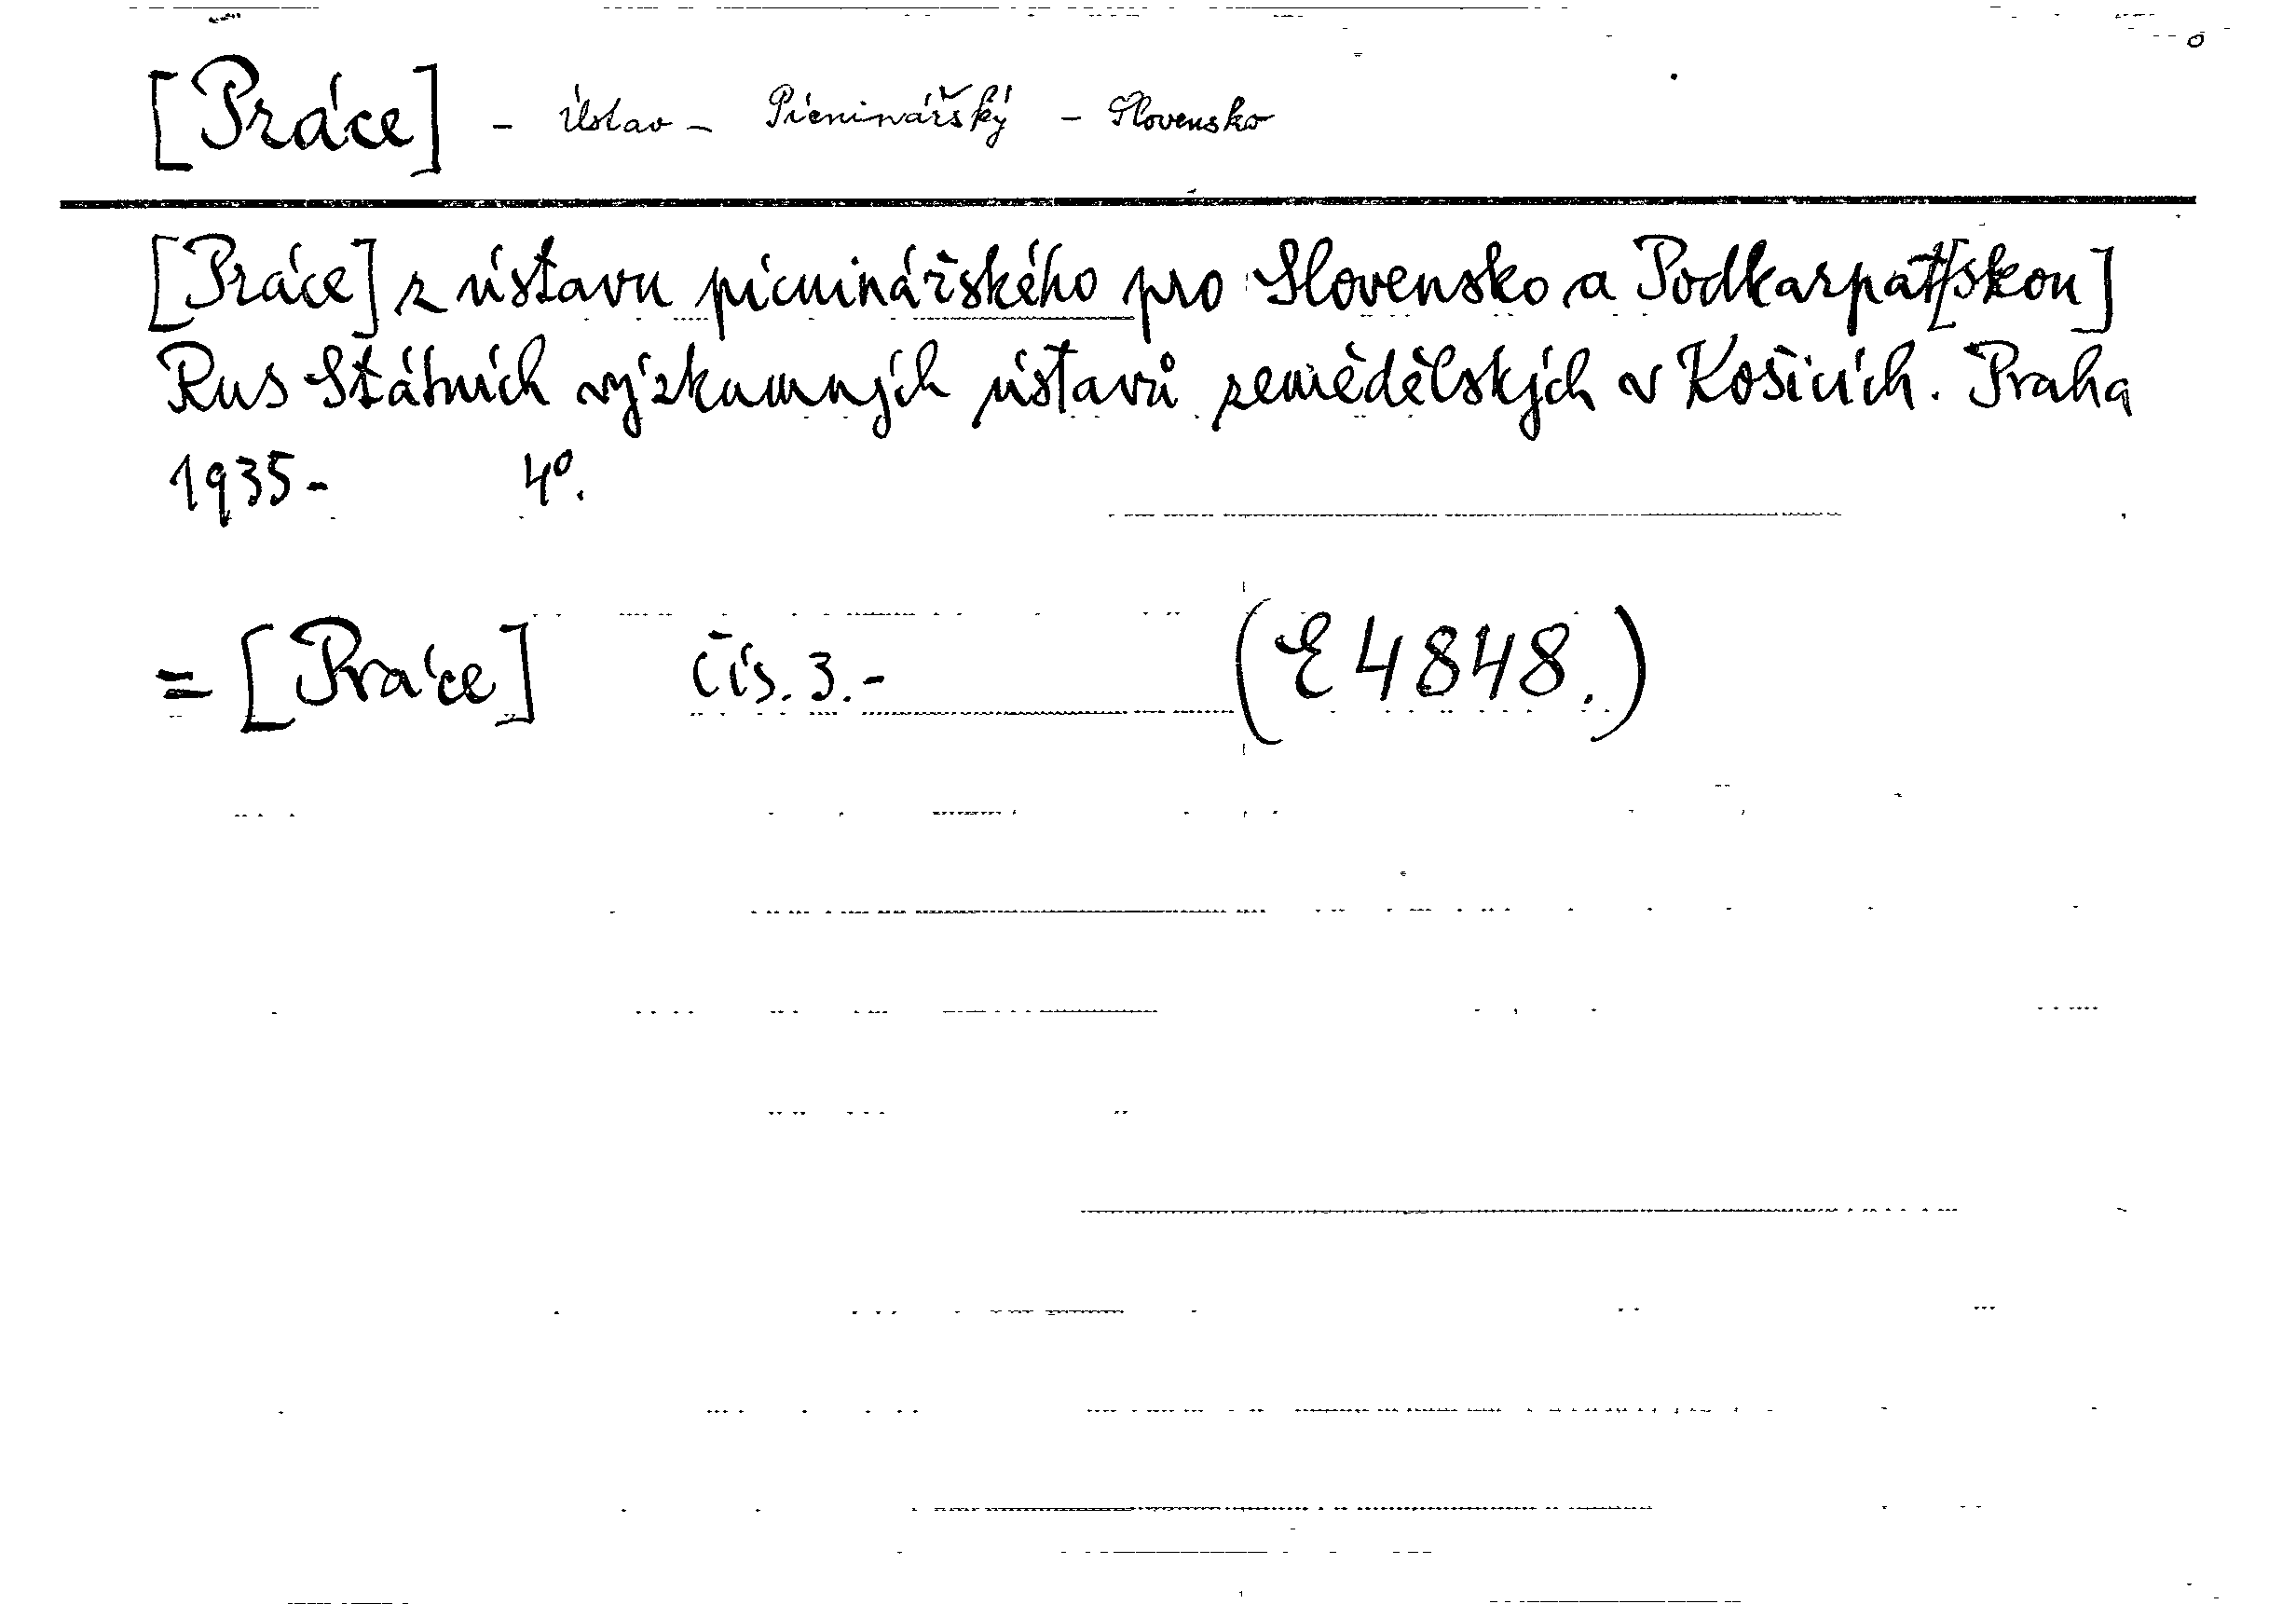 [Práce] - Ústav - Pícninářský - Slovensko
[Práce] z ústavu pícninářského pro Slovensko a Podkarpat[skou]
Rus Státních výzkumných ústavů zemědělských v Košicích. Praha
1935- 4º.
= [Práce] Čís. 3.- (E 4848.)